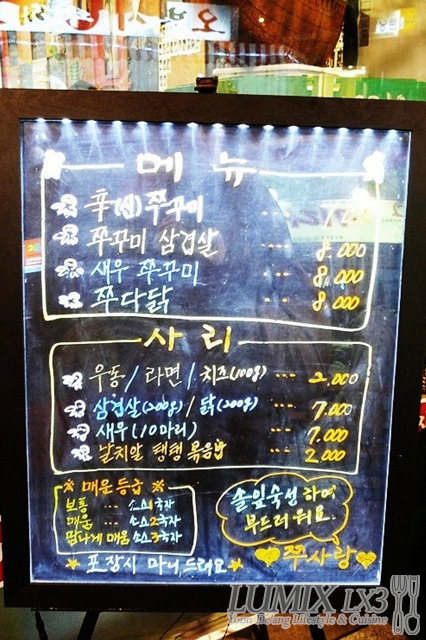 메뉴
辛(신)쭈꾸미 ---
쭈꾸미 삼겹살 --- 8.000
새우 쭈꾸미 --- 8.000
쭈다닭 --- 8,000
사리
우동/라면/치즈(100g) --- 2,000
삼겹살(200g)/닭(200g) --- 7,000
새우(10마리) --- 7.000
날치알 탱탱 볶음밥 --- 2,000
※ 매운등급 ※
보통 --- 소스1국자
매운 --- 소스2국자
땀나게 매운 소스3국자
솔잎숙성 하여
부드러워요.
포장시 마니 드려요
쭈사랑
LUMIX LX3
Yoon De'ang Lifestyle & Cuisine